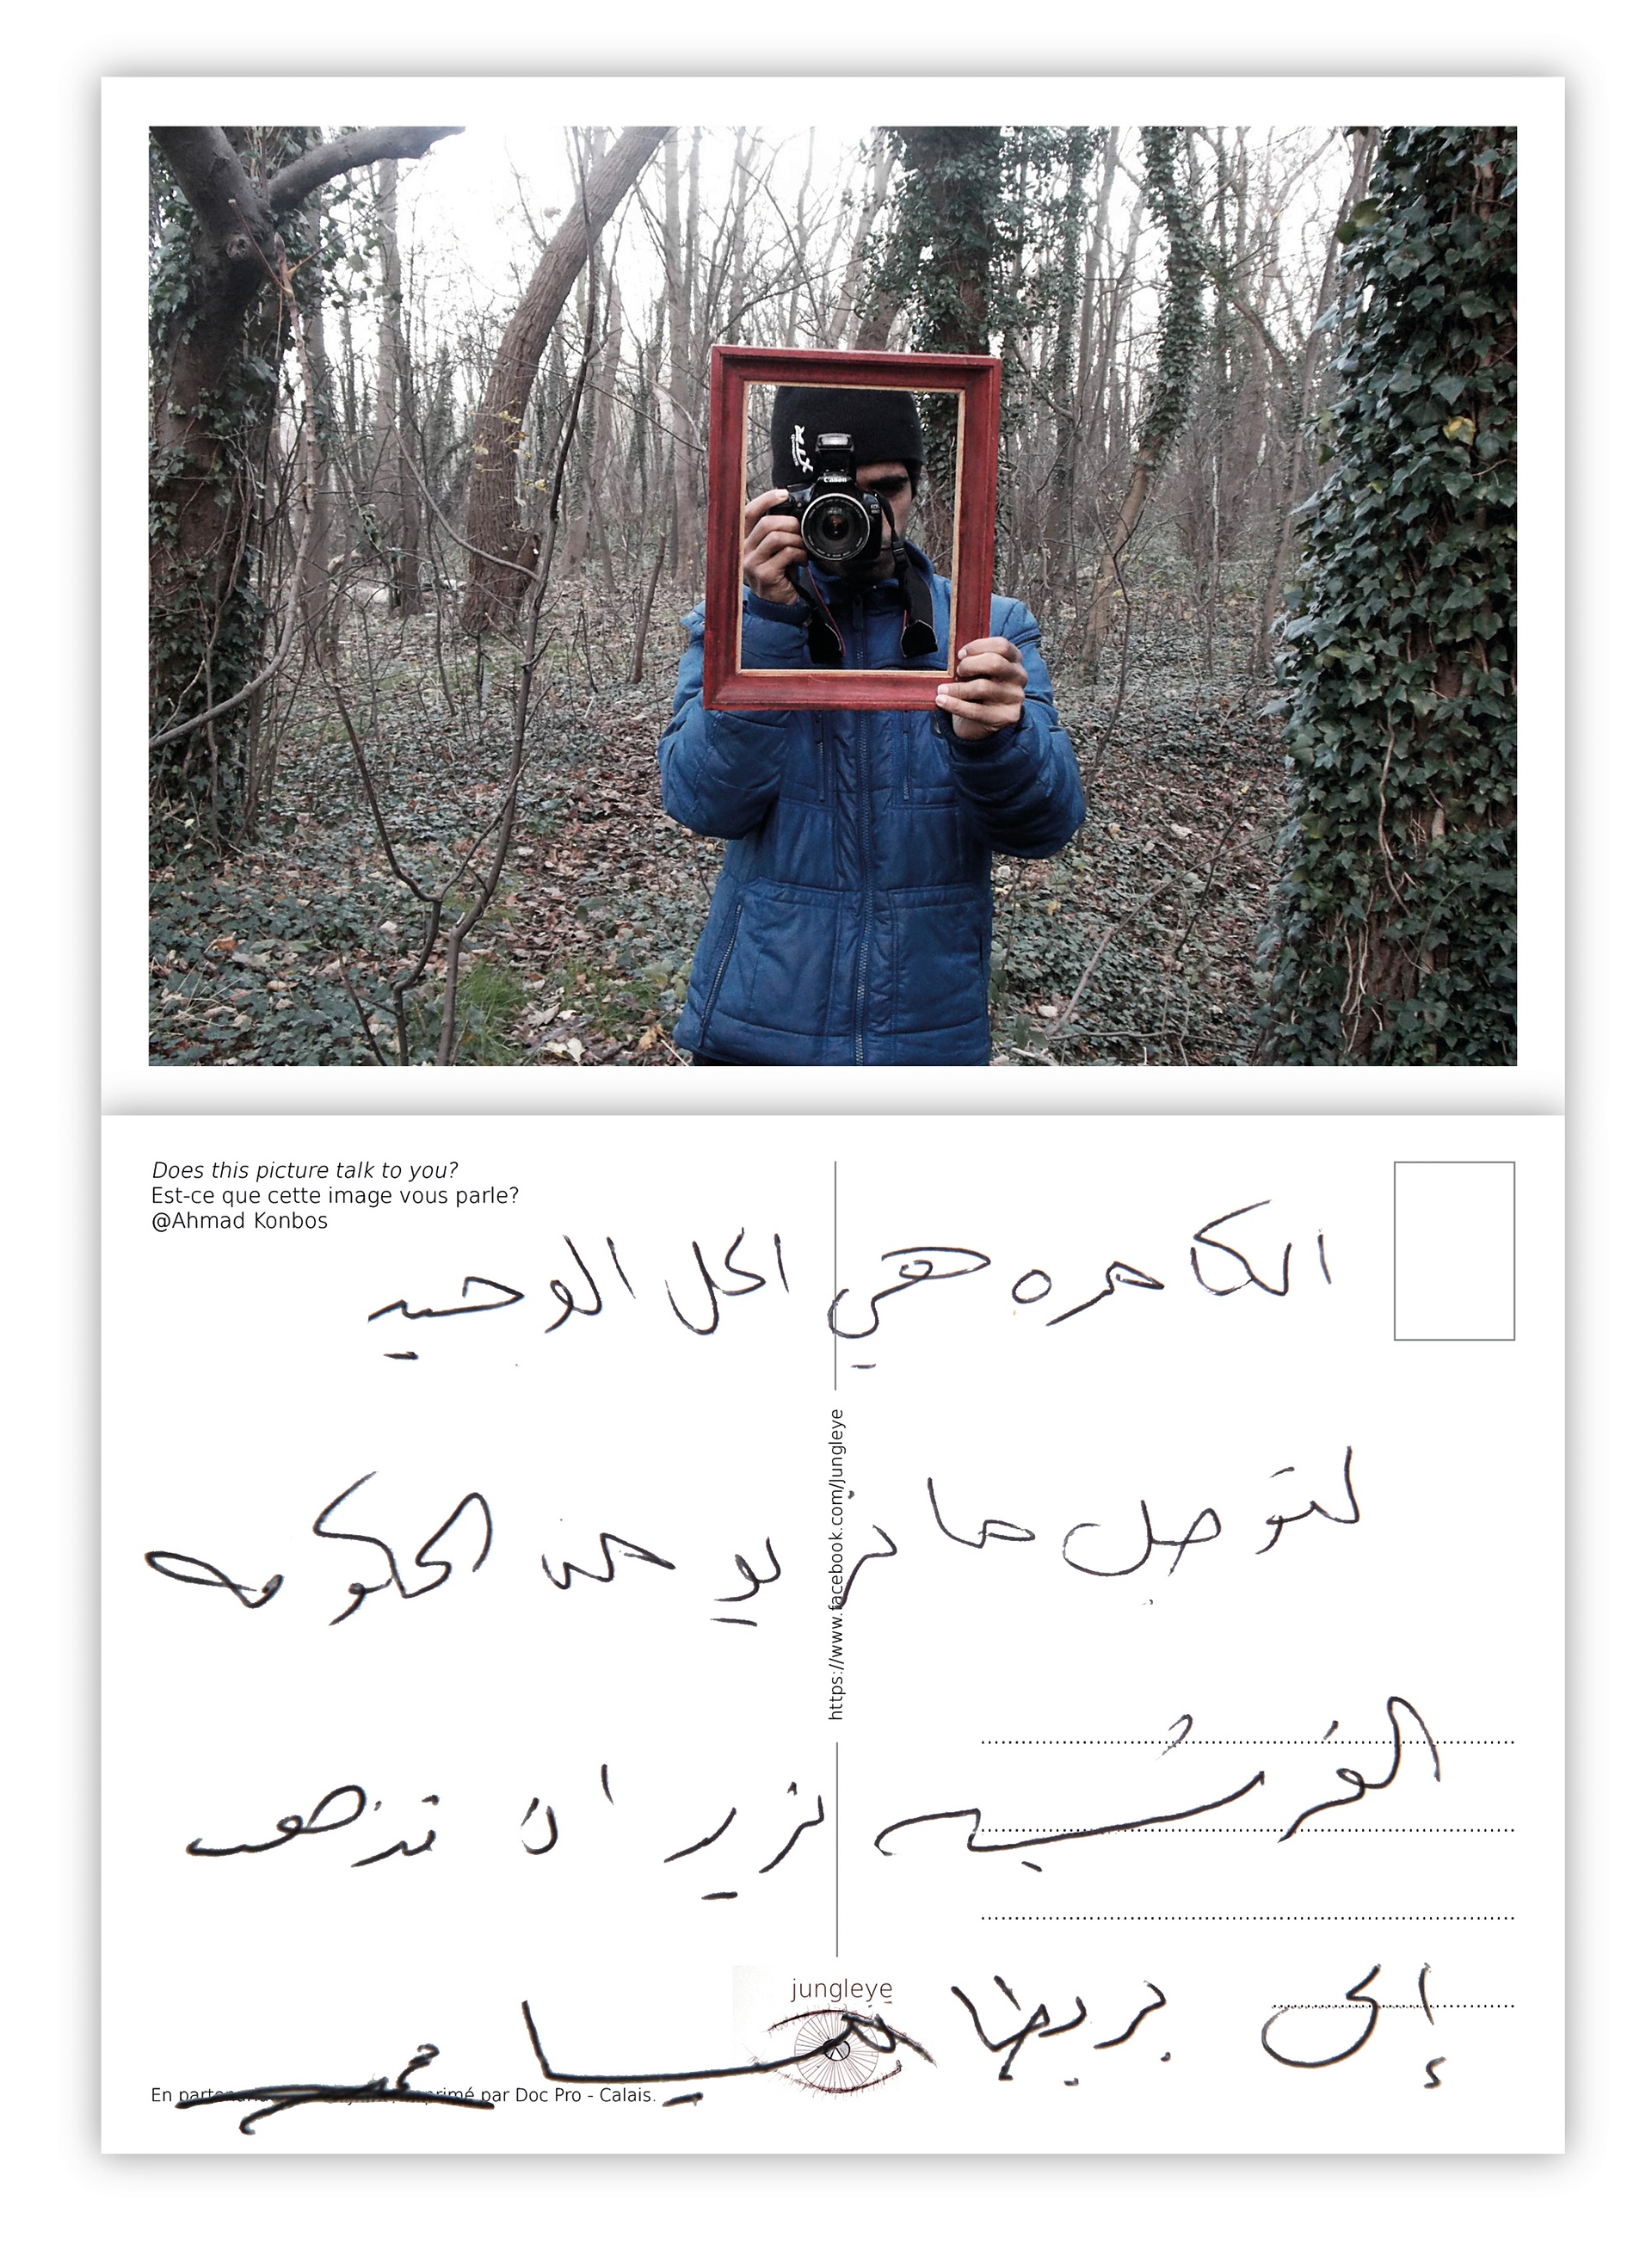 Canon
Does this picture talk to you?
Est-ce que cette image vous parle?
@Ahmad Konbos
الكامره هي الحل الوحيد
لتوصل ما نريد من الحكومه
الفرنسيه نريد ان تذهب
إلى بريطانيا
https://www.facebook.com/Jungleye
jungleye
En par Doc Pro - Calais.